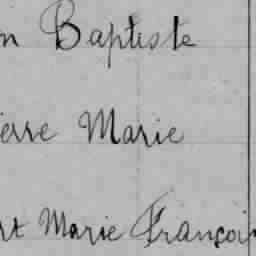 n Baptiste
ierre Marie
rt Marie Françoi